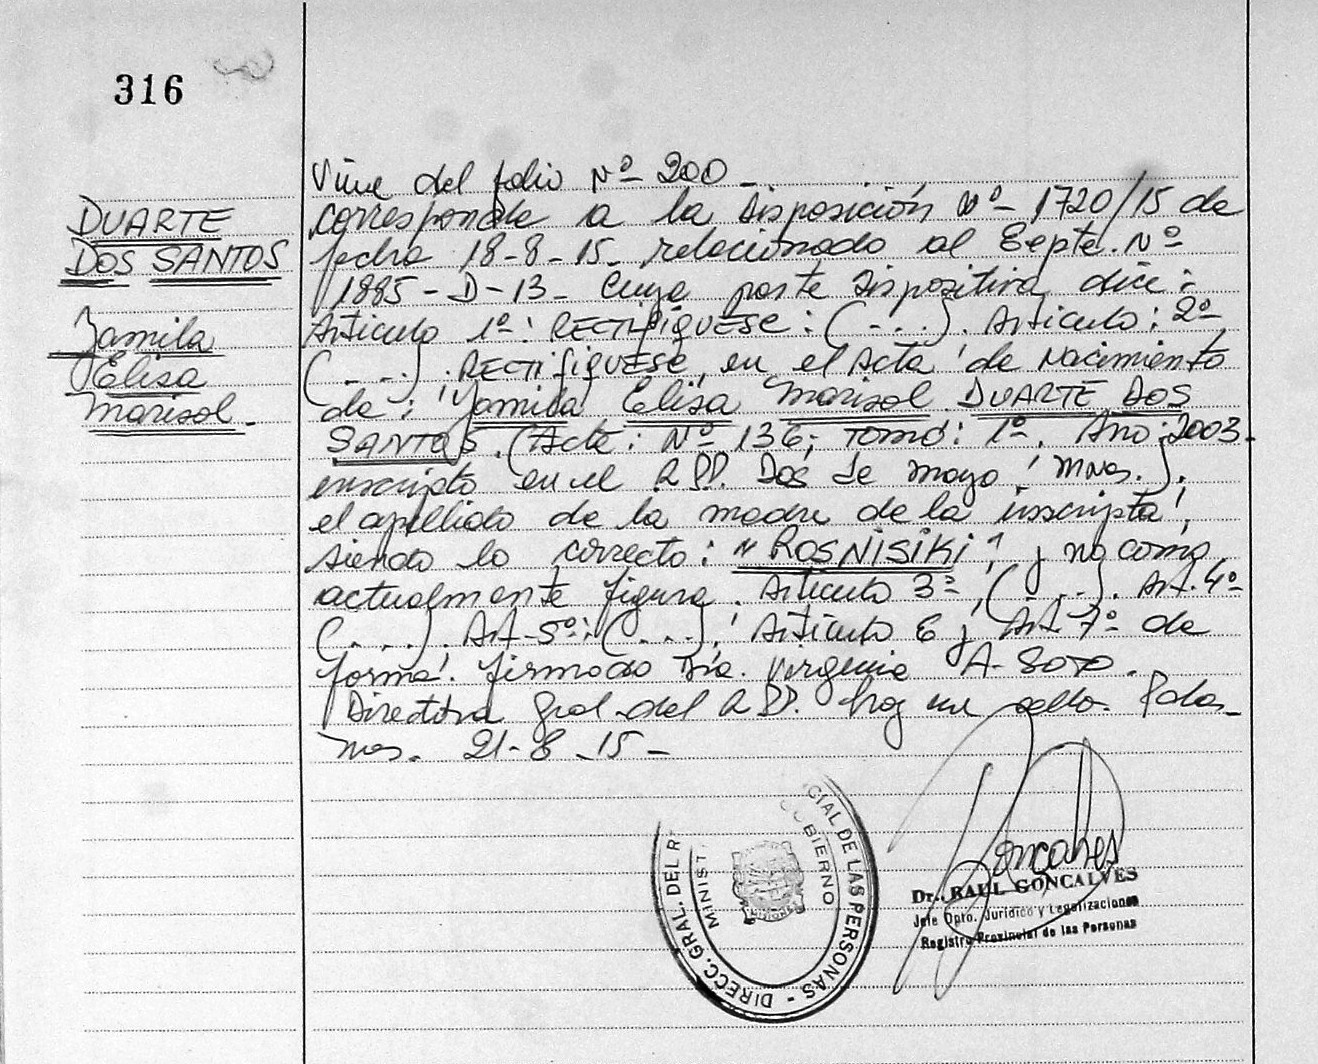 316
DUARTE
DOS SANTOS
Yamila
Elisa
Marisol.
Viene del folio Nº 200 -
corresponde a la Disposición Nº 1720/15 de
fecha 18-8-15. relacionado al Expte. Nº
1885-D-13- Cuya parte Dispositiva dice:
Artículo 1º: RECTIFIQUESE: (...). Artículo: 2º
(...). RECTIFIQUESE, en el Acta de Nacimiento
de: Yamila Elisa Marisol DUARTE DOS
SANTOS. (Acta: Nº 136; Tomo: 1º. Año: 2003.
inscripto en el RPP. Dos de Mayo, Mnes.).
el apellido de la madre de la inscripta,
siendo lo correcto: "ROSNISIKI" y no como
actualmente figura. Artículo 3º, (...). Art. 4º
(...). Art-5º: (...). Artículo 6 y Art 7º de
forma. firmado Dra. Virginia A. Soto.
Directora Gral. del RPP. hay un sello. Posa-
21-8-15-
DIRECC. GRAL. DEL R CIAL DE LAS PERSONAS -
MINIST OBIERNO
MISIONES
Goncalves
Dr. RAUL GONCALVES
Jefe Dpto. Jurídico y Legalizaciones
Registro Provincial de las Personas